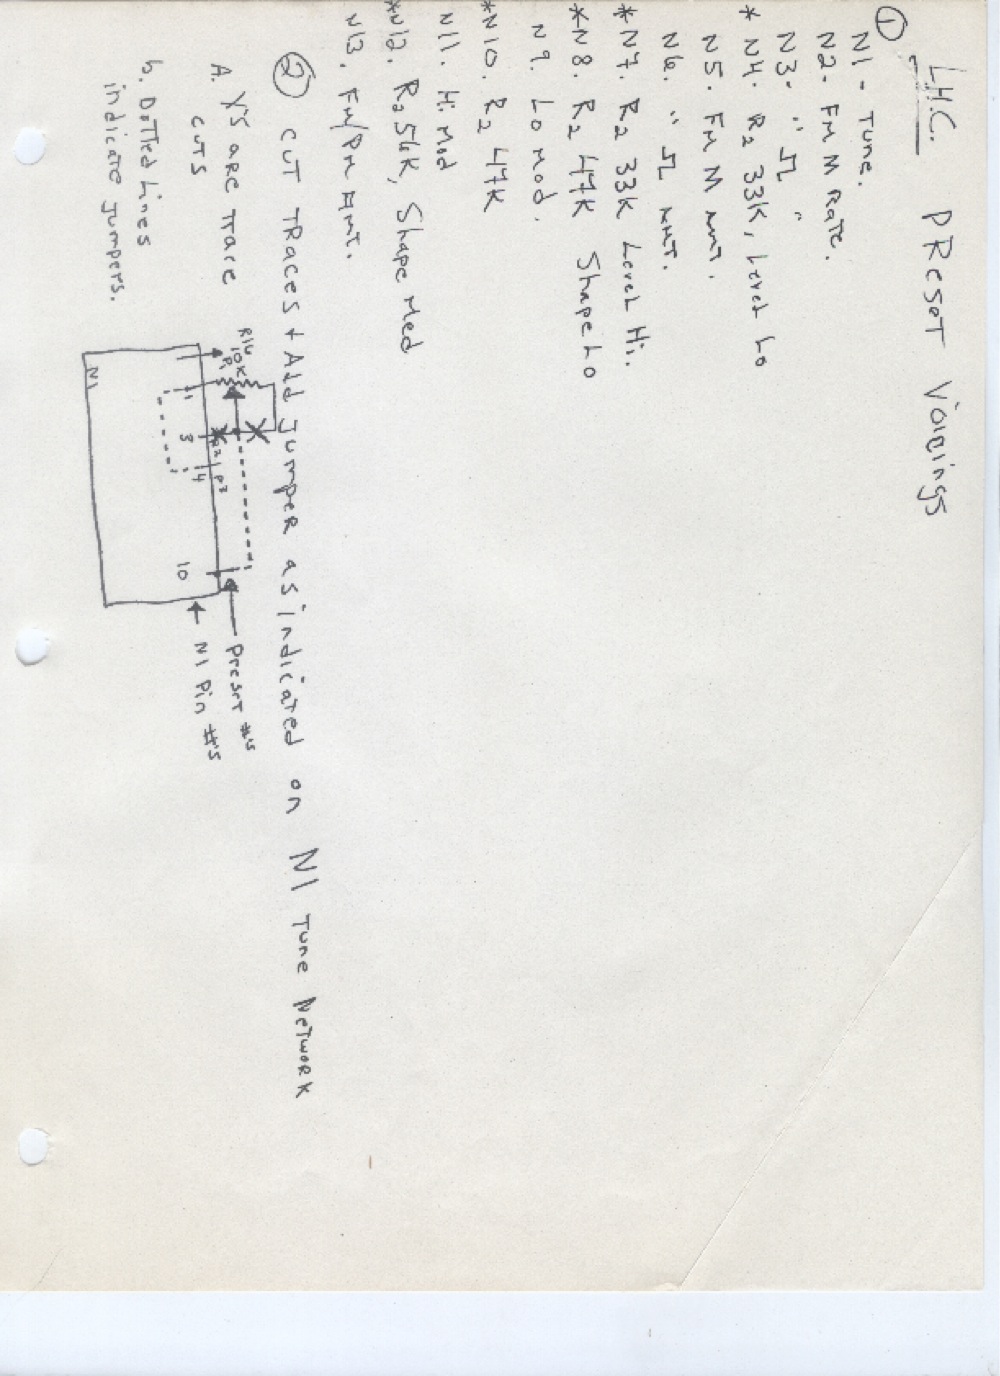 L.H.C. PResеT Voicings
①
N1 - Tune.
N2 - Fm M Rate.
N3 - " ⎍ "
* N4 - R2 33K, Level Lo
N5 - Fm M Amt.
N6. " ⎍ Amt.
*N7. R2 33K Level Hi.
*N8. R2 47K Shape Lo
N9. Lo Mod.
*N10. R2 47K
N11. Hi Mod
*N12. R2 56K, Shape Med
N13. Fm/Pm Amt.
② CUT TRaces + Add Jumper as indicated on N1 Tune NeTwoRK
A. X's are Trace
cuTs
b. DoTTed Lines
indicate jumpers.
R16
10K
R1
R2 P3
1 3 4 10
N1
Preset #'s
N1 Pin #'s